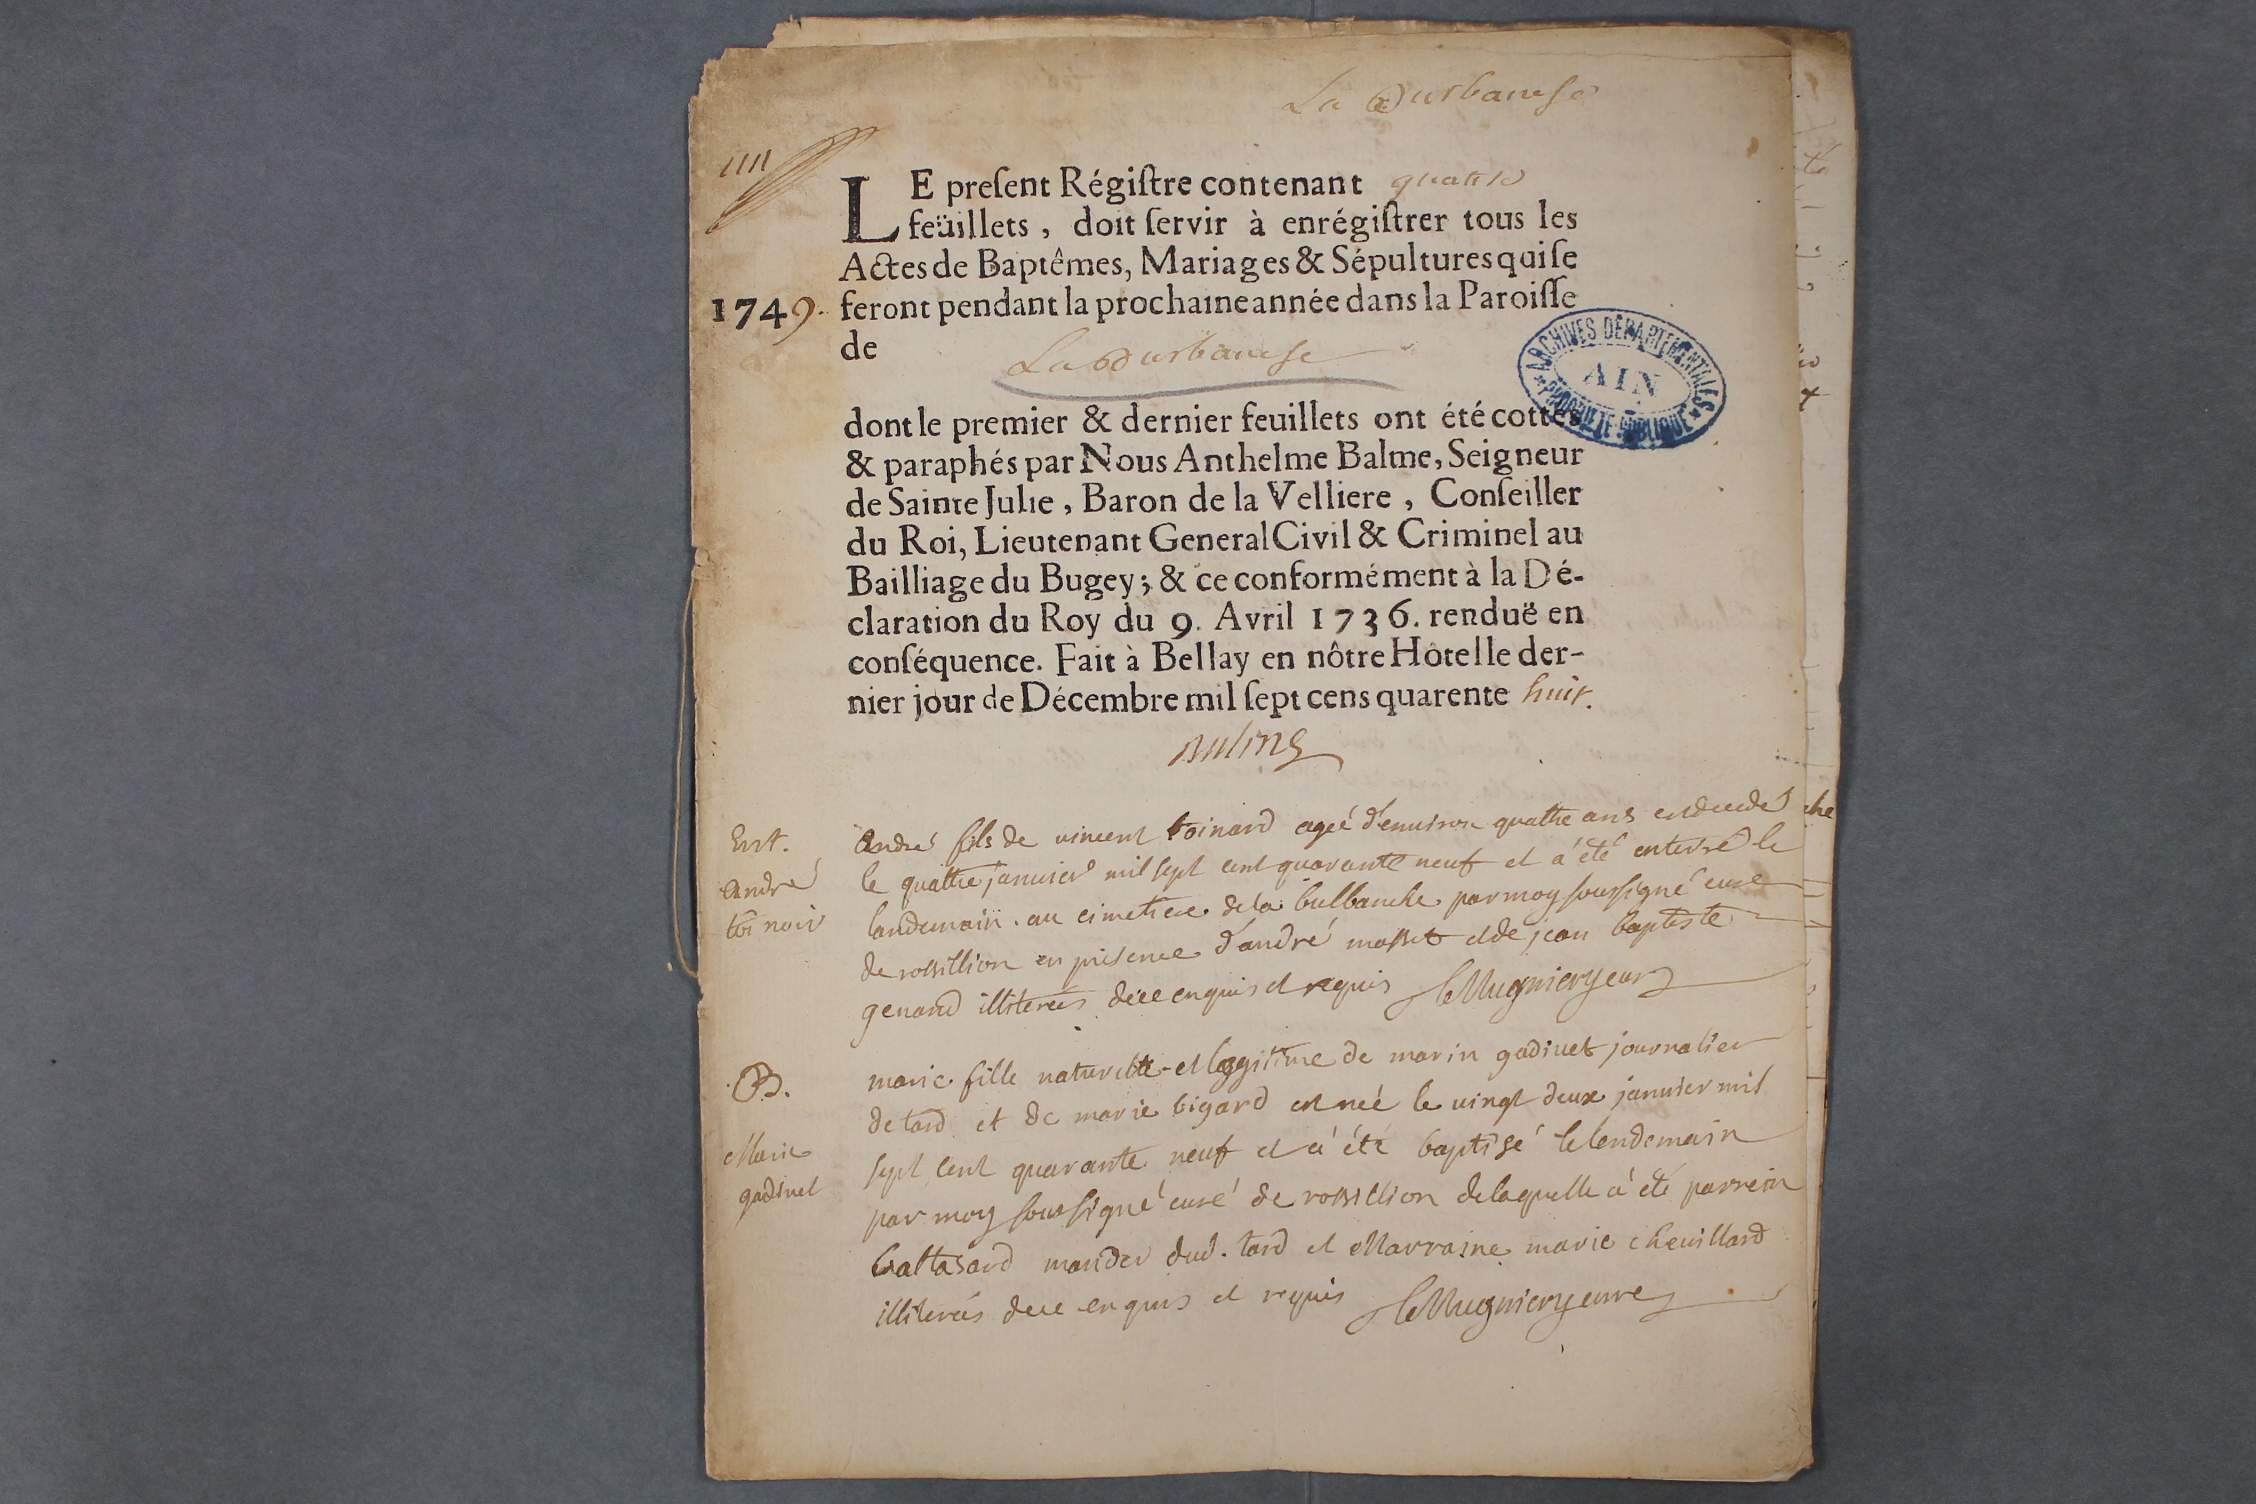 La Burbanche
IIII
LE preſent Régiſtre contenant quatre
feüillets, doit ſervir à enrégiſtrer tous les
Actes de Baptêmes, Mariages & Sépultures qui ſe
1749. feront pendant la prochaine année dans la Paroiſſe
de La Burbanche
ARCHIVES DÉPARTEMENTALES
AIN
PROPRIÉTÉ PUBLIQUE
dont le premier & dernier feuillets ont été cottés
& paraphés par Nous Anthelme Balme, Seigneur
de Sainte Julie, Baron de la Velliere, Conſeiller
du Roi, Lieutenant General Civil & Criminel au
Bailliage du Bugey; & ce conformément à la Dé-
claration du Roy du 9. Avril 1736. renduë en
conſéquence. Fait à Bellay en nôtre Hôtel le der-
nier jour de Décembre mil ſept cens quarente huit.
Ent.
andré
toinard
andré fils de vincent toinard ageé d'environ quattre ans est decedé
le quattre janvier mil sept cent quarante neuf et a été enterré le
landemain au cimetiere de la bulbanche par moy soussigné curé
de rossillion en presence d'andré masset et de jean baptiste
genand illiterés de ce enquis et requis Mugniery curé
B.
Marie
gadinet
marie fille naturelle et legitime de marin gadinet journalier
de tard et de marie bigard est neé le vingt deux janvier mil
sept cent quarante neuf et a été baptisé le lendemain
par moy soussigné curé de rossillion de laquelle a été parrein
baltasard mander dud. tard et Marraine marie chevillard
illiterés de ce enquis et requis Mugniery curé